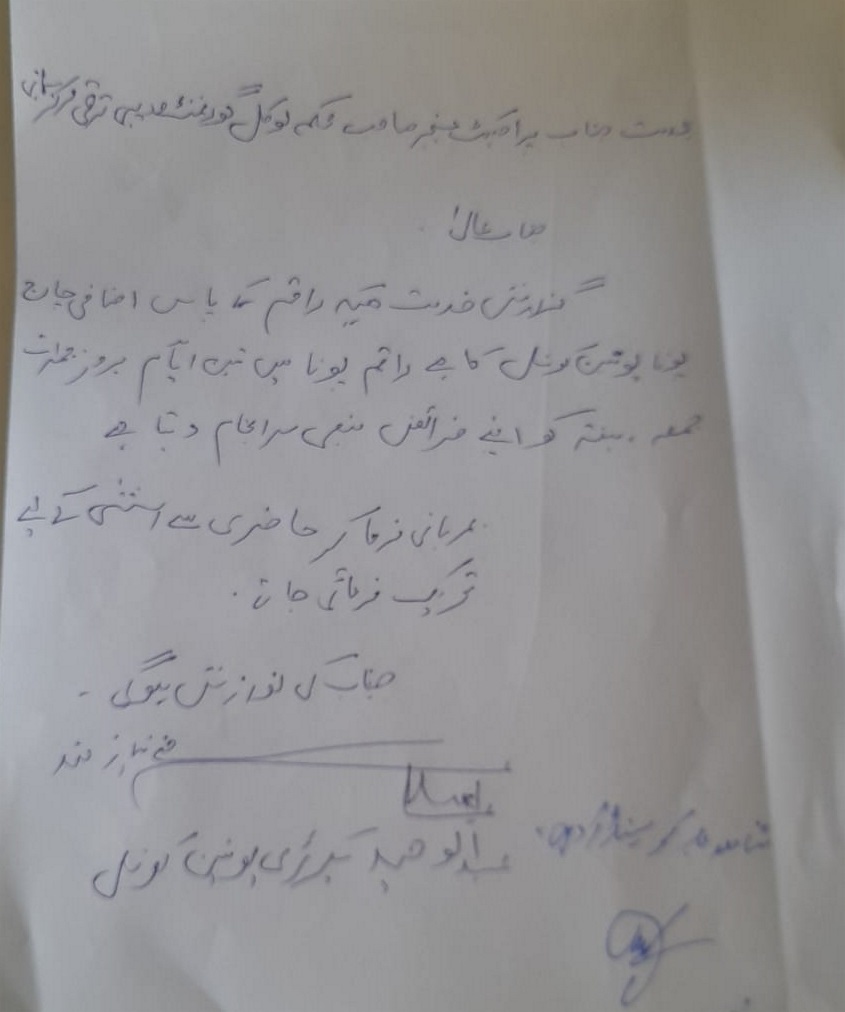 بخدمت جناب پراجیکٹ منیجر صاحب محکمہ لوکل گورنمنٹ دیہی ترقی مرکز
جناب عالی!
گزارش خدمت ہیکہ راقم کے پاس اضافی چارج
یونا یونین کونسل کا ہے راقم یونا میں تین ایام بروز جمعرات
جمعہ، ہفتہ کو اپنے فرائض منصبی سرانجام دیتا ہے
مہربانی فرما کر حاضری سے استثنیٰ کے لیے
تحریک فرمائی جائے۔
جناب کی نوازش ہوگی۔
نیاز مند
عبدالوحید سیکرٹری یونین کونسل